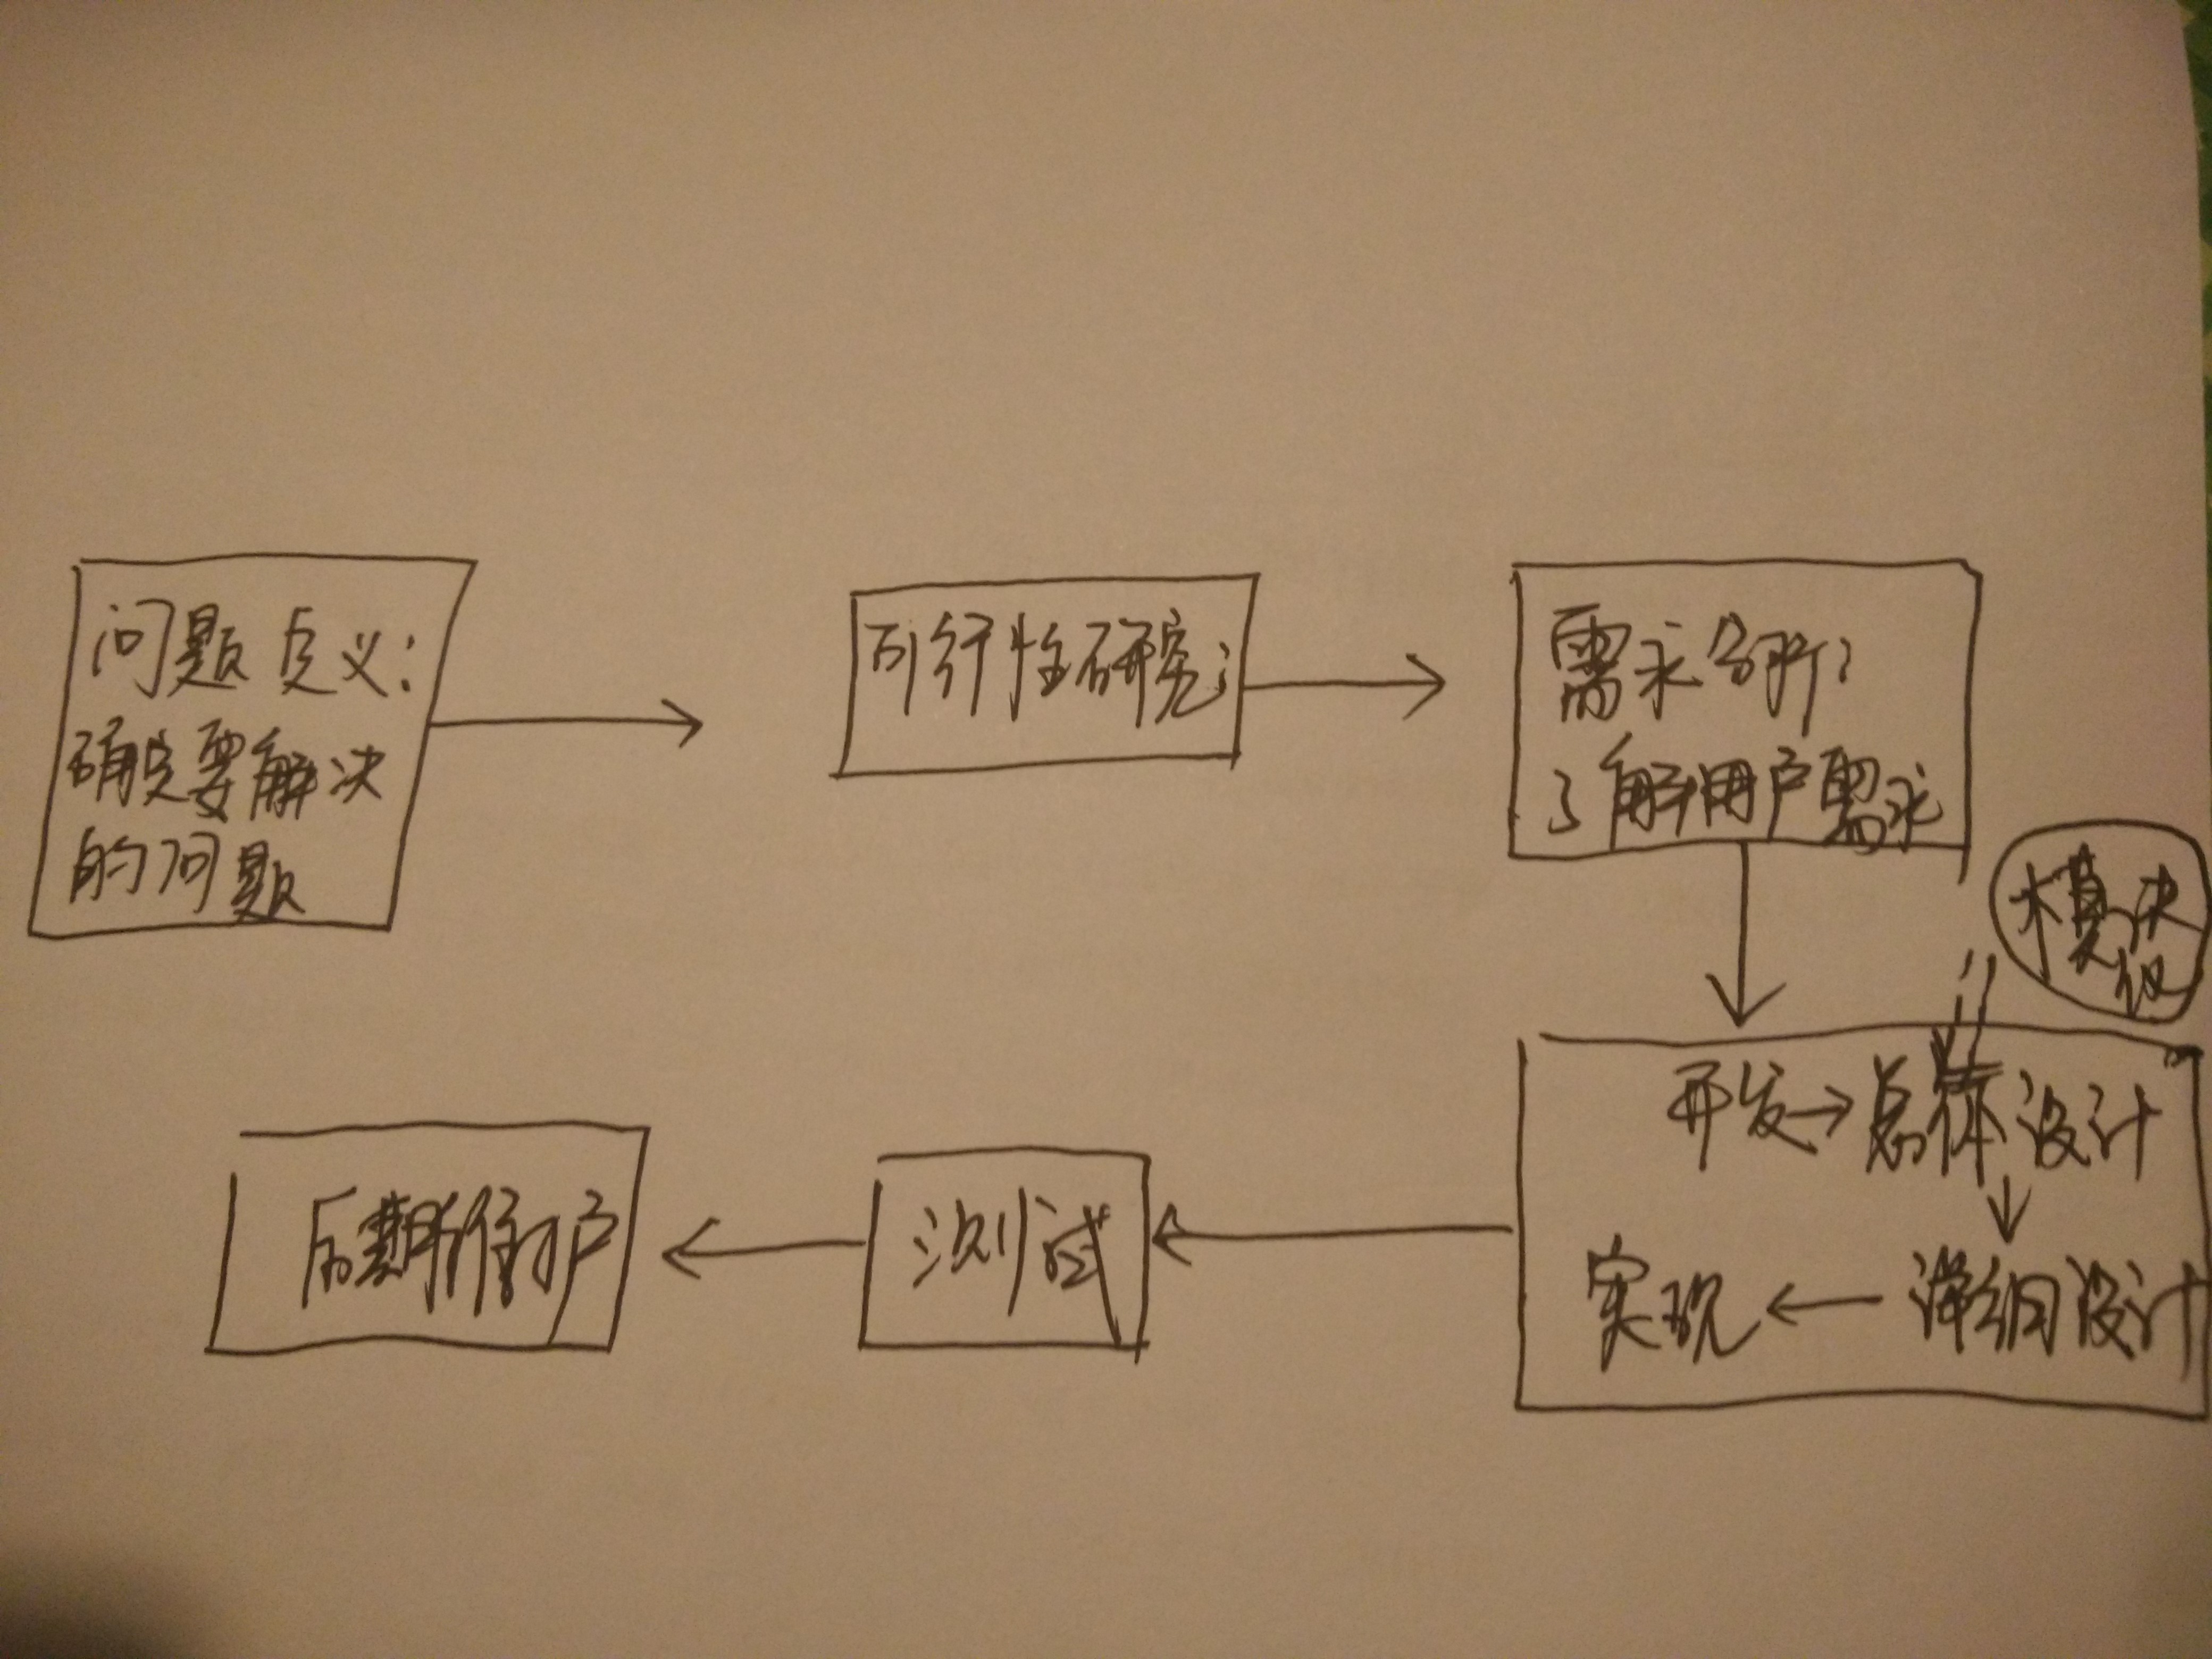 问题定义:
确定要解决
的问题
可行性研究:
需求分析:
了解用户需求
模块
化
开发→总体设计
↓
实现←详细设计
测试
后期维护